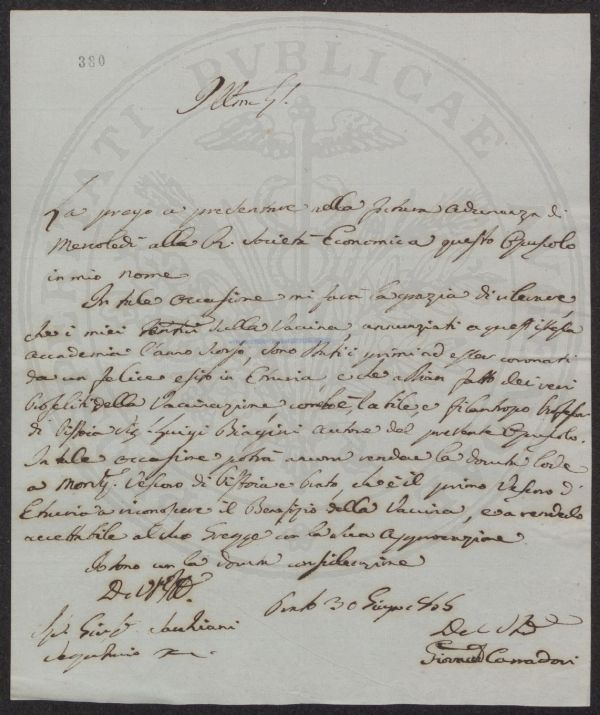 380
La prego a presentare nella futura adunanza di
Mercoledì alla R. Società Economica questo Opuscolo
in mio nome
In tale occasione mi farà la grazia di rilevare,
che i miei sulla Vaccina annunziati a quest'istessa
accademia l'anno scorso, sono stati i primi ad esser coronati
da un felice esito in Etruria, e che abbian fatto dei veri
proseliti della Vaccinazione com'è l'abile e filantropo Professor
di Pistoia Sig. Luigi Biagini autore del presente Opuscolo.
In tale occasione potrà ancora rendere la dovuta lode
a Monsig. Vescovo di Pistoia e Prato che è il primo Vescovo d'
Etruria a riconoscere il Benefizio della Vaccina, e a renderlo
accettabile al suo Gregge con la sua Approvazione
Io sono con la dovuta considerazione
Prato 30 Giugno
Sig. Sacchiani
Segretario
Giovacch Carradori